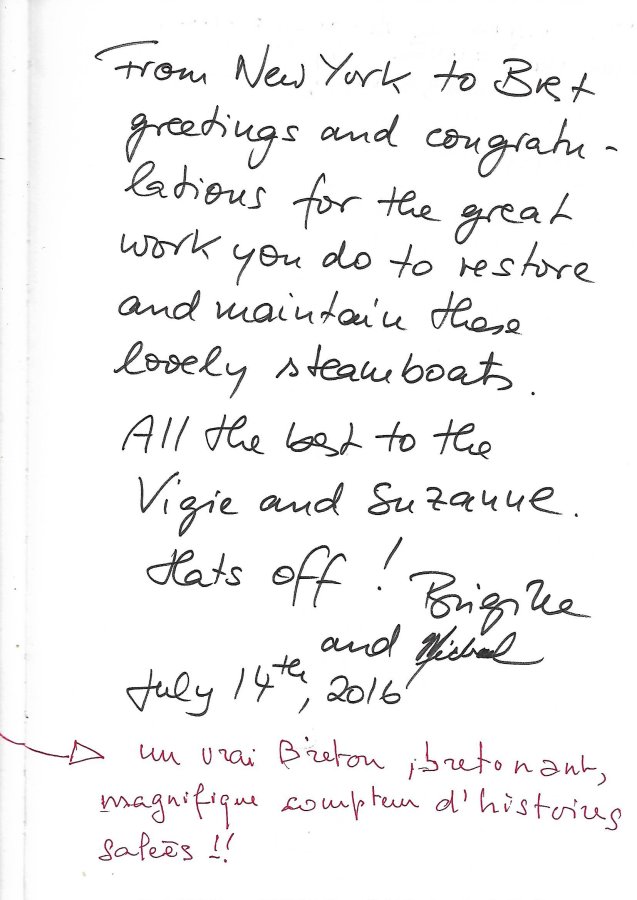 From New York to Brest
greetings and congratu-
lations for the great
work you do to restore
and maintain these
lovely steamboats.
All the best to the
Vigie and Suzanne.
Hats off! Brigitte
and Michael
July 14th, 2016
un vrai Breton, bretonant,
magnifique compteur d'histoires
salées !!